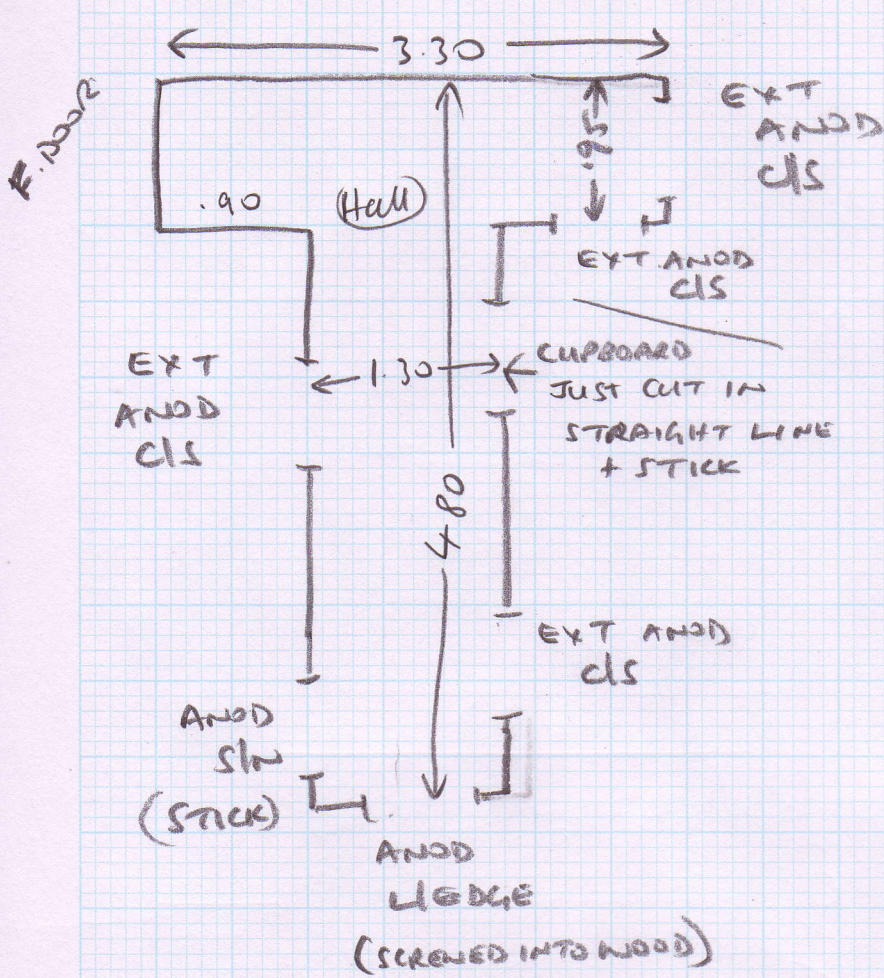 3.30
F. DOOR
EXT
ANOD
C/S
.95
.90
Hall
EXT ANOD
C/S
EXT
ANOD
C/S
1.30
CUPBOARD
JUST CUT IN
STRAIGHT LINE
+ STICK
4.80
EXT ANOD
C/S
ANOD
S/N
(STICK)
ANOD
L/EDGE
(SCREWED INTO WOOD)